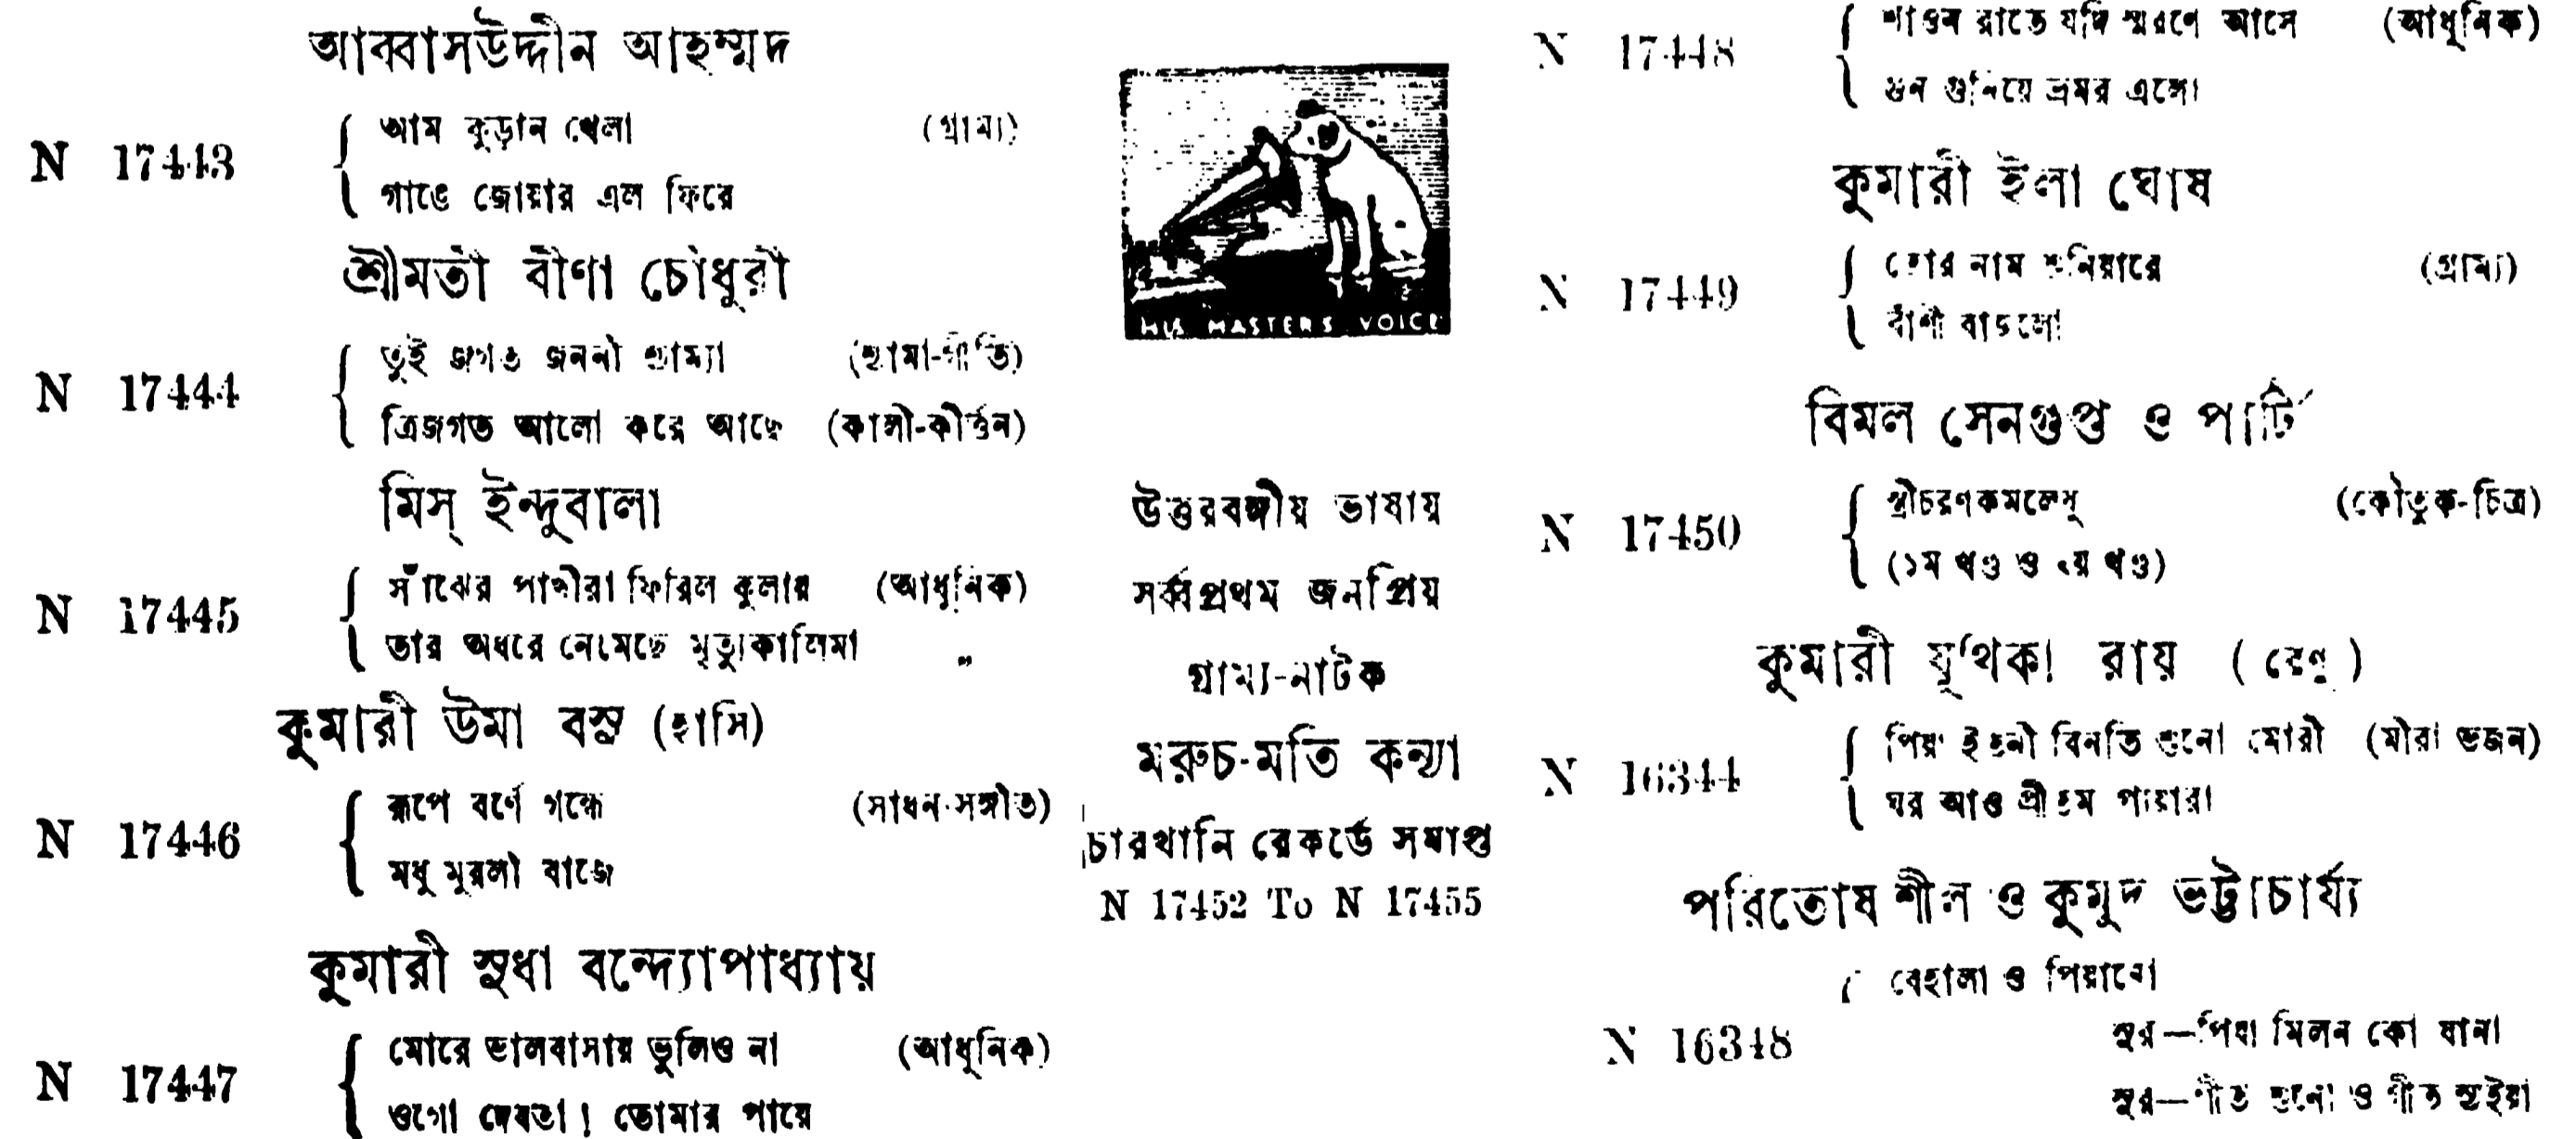 আব্বাসউদ্দীন আহম্মদ
N 17443
আম কুড়ান খেলা (গ্রাম্য)
গাঙে জোয়ার এল ফিরে
শ্রীমতী বীণা চৌধুরী
N 17444
তুই জগত জননী শ্যামা (শ্যামা-গীতি)
ত্রিজগত আলো করে আছে (কালী-কীর্ত্তন)
মিস্ ইন্দুবালা
N 17445
সাঁঝের পাখীরা ফিরিল কুলায় (আধুনিক)
তার অধরে নেমেছে মৃত্যুকালিমা "
কুমারী উমা বসু (হাসি)
N 17446
রূপে বর্ণে গন্ধে (সাধন-সঙ্গীত)
মধু মুরলী বাজে
কুমারী সুধা বন্দ্যোপাধ্যায়
N 17447
মোরে ভালবাসায় ভুলিও না (আধুনিক)
ওগো দেবতা! তোমার পায়ে
HIS MASTERS VOICE
উত্তরবঙ্গীয় ভাষায়
সর্ব্বপ্রথম জনপ্রিয়
গ্রাম্য-নাটক
মরুচ-মতি কন্যা
চারখানি রেকর্ডে সমাপ্ত
N 17452 To N 17455
N 17448
শাওন রাতে যদি স্মরণে আসে (আধুনিক)
গুন গুনিয়ে ভ্রমর এলো
কুমারী ইলা ঘোষ
N 17449
তোর নাম শুনিয়ারে (গ্রাম্য)
বাঁশী বাজলো
বিমল সেনগুপ্ত ও পার্টি
N 17450
শ্রীচরণকমলেষু (কৌতুক-চিত্র)
(১ম খণ্ড ও ২য় খণ্ড)
কুমারী যূথিকা রায় (রেণু)
N 16344
পিয়া ইতনী বিনতি শুনো মোরী (মীরা ভজন)
ঘর আও প্রীতম প্যারা
পরিতোষ শীল ও কুমুদ ভট্টাচার্য্য
বেহালা ও পিয়ানো
N 16348
সুর—পিয়া মিলন কো যানা
সুর—গীত শুনো ও গীত সইয়া